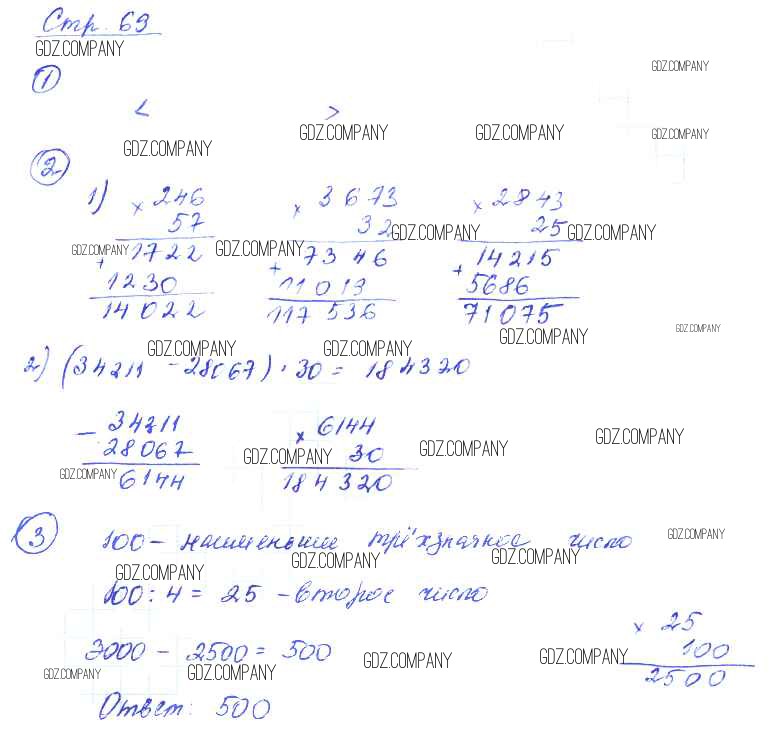 Стр. 69
GDZ.COMPANY
GDZ.COMPANY
①
< >
GDZ.COMPANY GDZ.COMPANY GDZ.COMPANY GDZ.COMPANY
②
1) × 246 × 3673 × 2843
57 32 GDZ.COMPANY 25 GDZ.COMPANY
GDZ.COMPANY 1722 GDZ.COMPANY 7346 14215
+ 1230 + 11019 + 5686
14022 117536 71075
GDZ.COMPANY GDZ.COMPANY GDZ.COMPANY GDZ.COMPANY
2) (34211 - 28067) · 30 = 184320
- 34211 × 6144 GDZ.COMPANY
28067 GDZ.COMPANY 30 GDZ.COMPANY
GDZ.COMPANY 6144 184320
③ 100 - наименьшее трёхзначное число GDZ.COMPANY
GDZ.COMPANY GDZ.COMPANY GDZ.COMPANY
100 : 4 = 25 - второе число
× 25
3000 - 2500 = 500 100
GDZ.COMPANY GDZ.COMPANY GDZ.COMPANY GDZ.COMPANY 2500
Ответ: 500